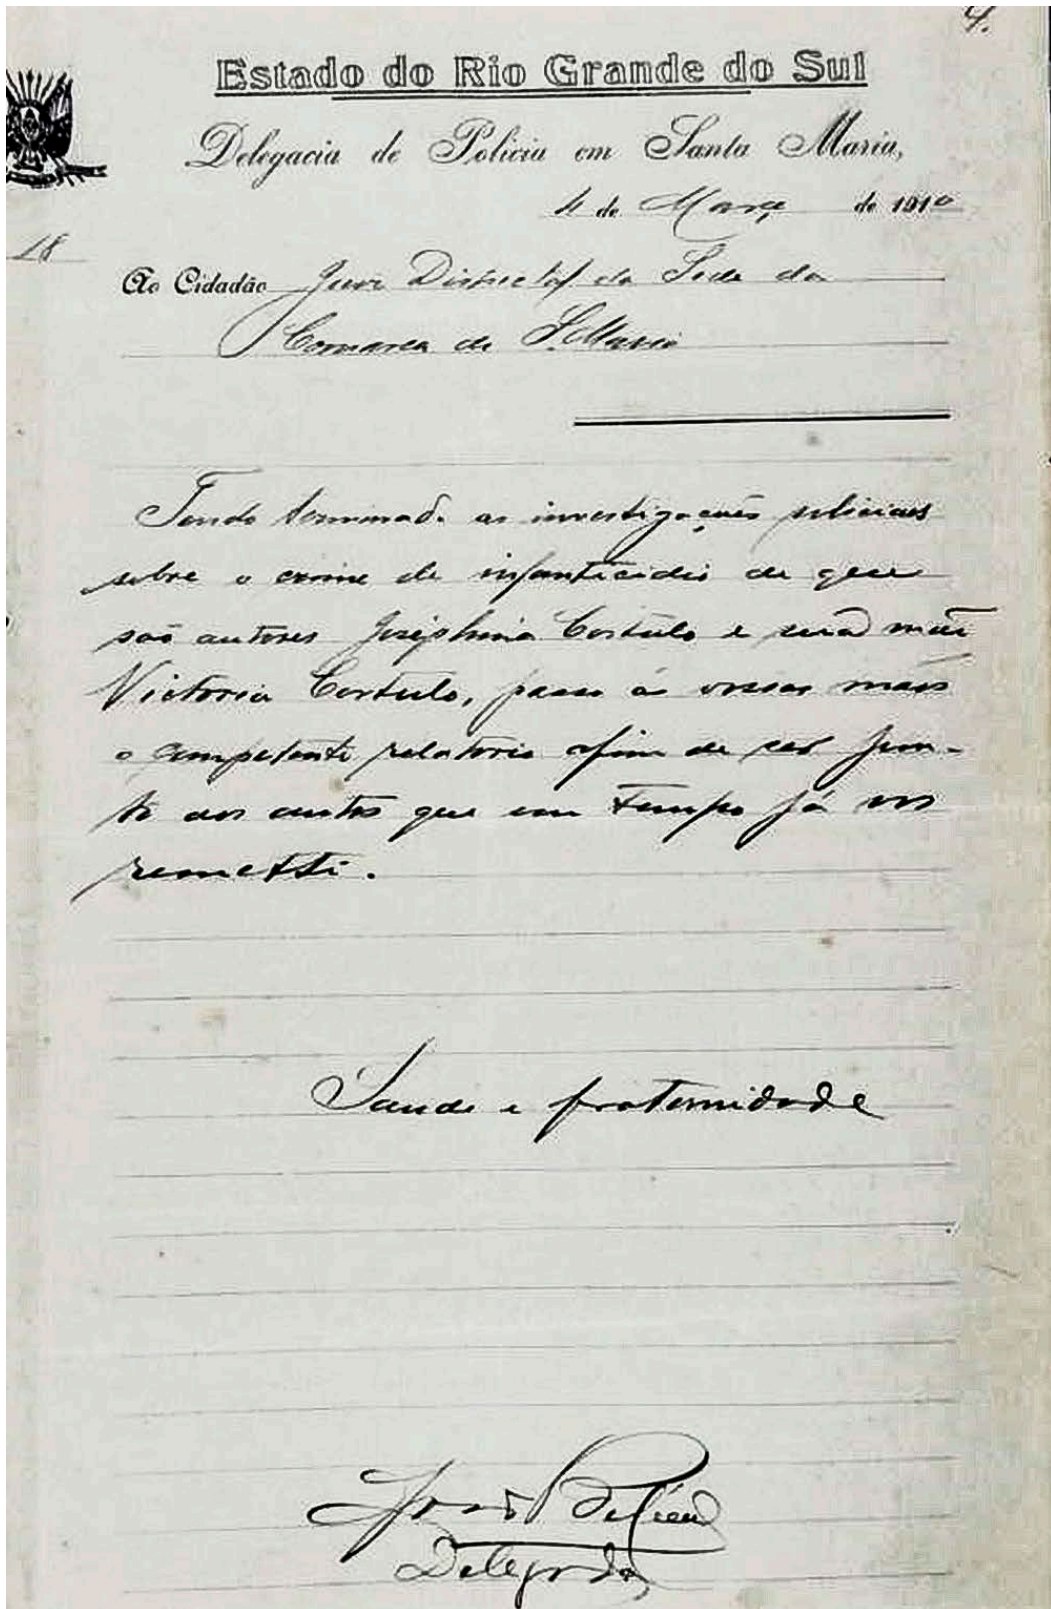 4.
Estado do Rio Grande do Sul
Delegacia de Policia em Santa Maria,
4 de Março de 1910
18
Ao Cidadão Juiz Districtal da Sede da
Comarca de S. Maria
Tendo terminado as investigações policiaes
sobre o crime de infanticidio de que
são autores Josephina Cortulo e sua mãe
Victoria Cortulo, passo ás vossas mãos
o competente relatorio afim de ser jun-
to aos autos que em tempo já vos
remetti.
Saude e fraternidade
Delegado